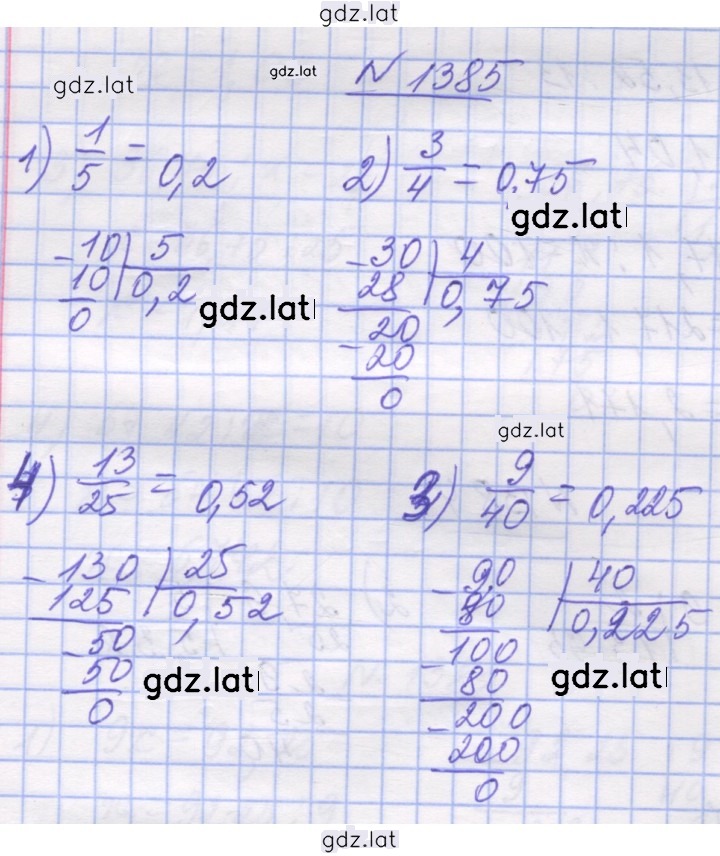 gdz.lat
gdz.lat
gdz.lat
№ 1385
1) 1/5 = 0,2
2) 3/4 = 0.75
gdz.lat
-10 | 5
10 | 0,2
0
gdz.lat
-30 | 4
28 | 0,75
-20
20
0
gdz.lat
gdz.lat
4) 13/25 = 0,52
3) 9/40 = 0,225
-130 | 25
125 | 0,52
-50
50
0
gdz.lat
-9,0 | 40
80 | 0,225
-100
80
-200
200
0
gdz.lat
gdz.lat